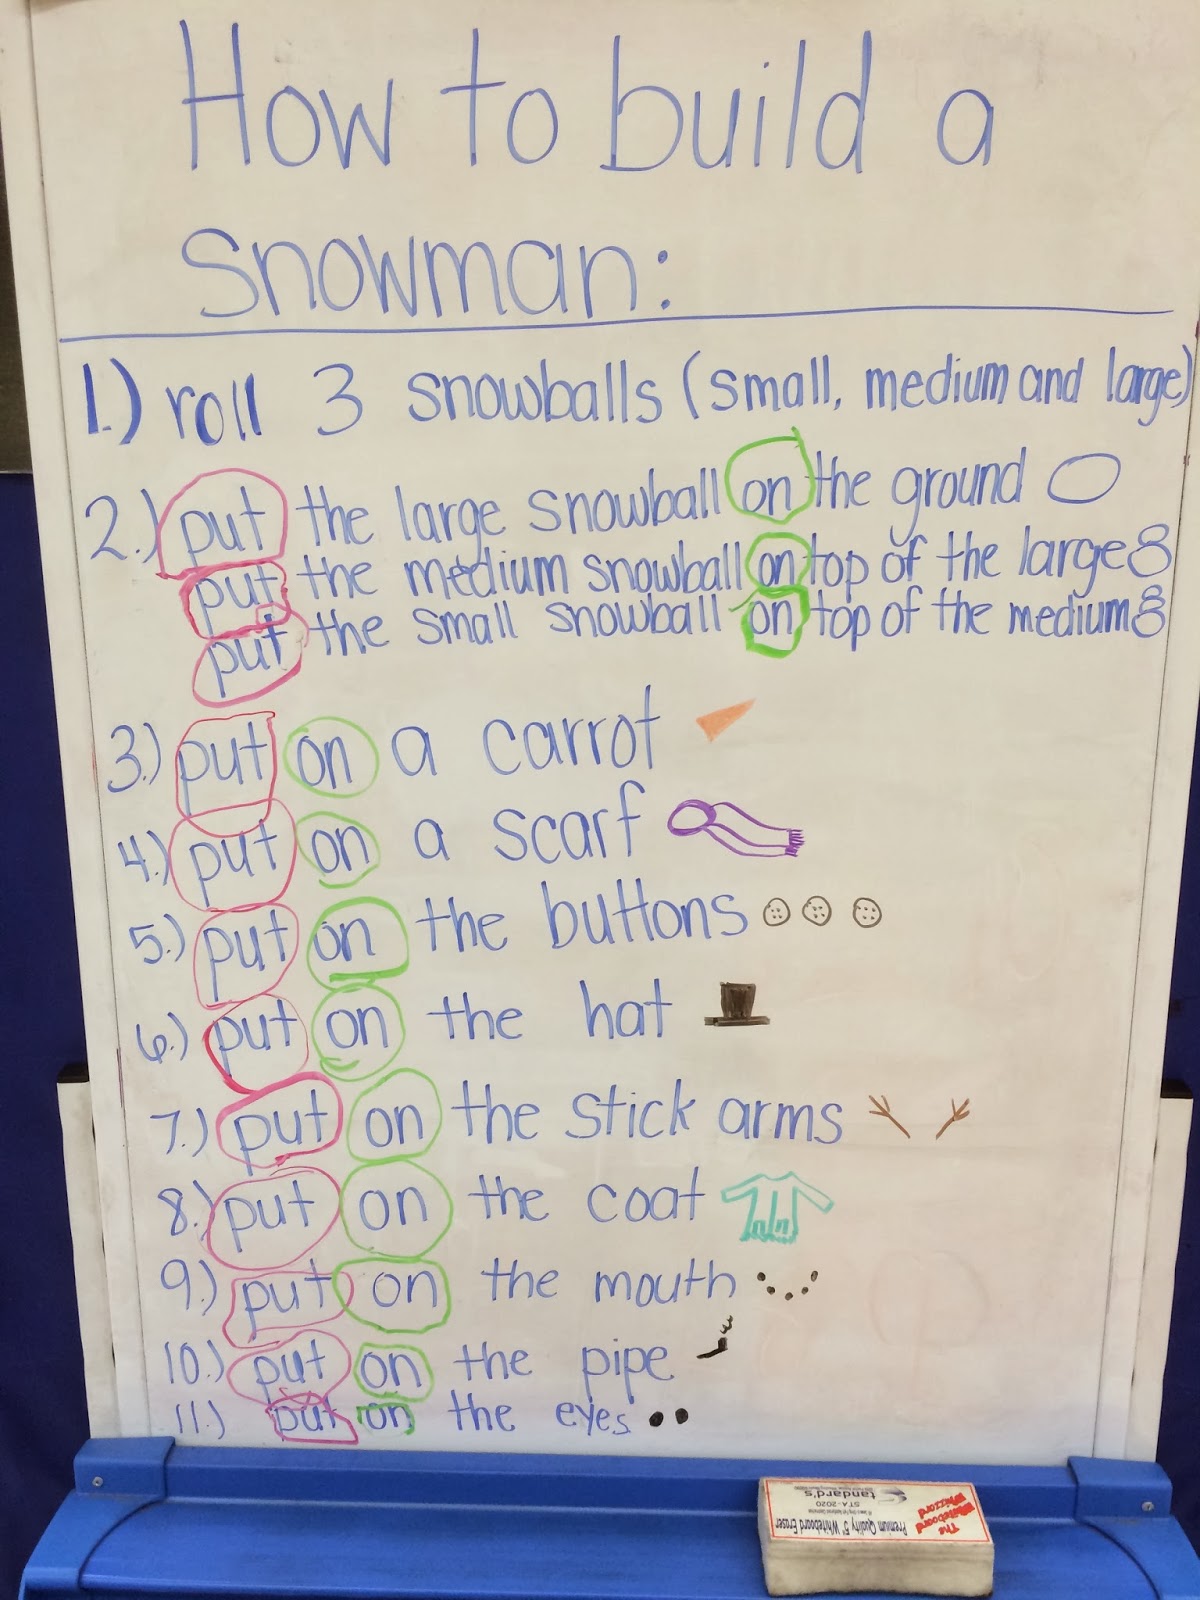 How to build a
Snowman:
1.) roll 3 snowballs (small, medium and large)
2.) put the large snowball on the ground
put the medium snowball on top of the large
put the small snowball on top of the medium
3.) put on a carrot
4.) put on a scarf
5.) put on the buttons
6.) put on the hat
7.) put on the stick arms
8.) put on the coat
9.) put on the mouth
10.) put on the pipe
11.) put on the eyes
The
Whiteboard
Whizzard
Premium Quality 5" Whiteboard Eraser
STA-2020
tandard's